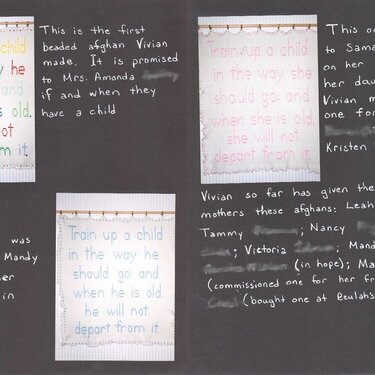 child
y he
and
s old,
ot
m it.
This is the first
beaded afghan Vivian
made. It is promised
to Mrs. Amanda
if and when they
have a child
was
Mandy
her
in
Train up a child
in the way he
should go: and
when he is old,
he will not
depart from it.
Train up a child
in the way she
should go: and
when she is old,
she will not
depart from it.
This on
to Sama
on her
her dau
Vivian m
one for
Kristen
Vivian so far has given the
mothers these afghans: Leah
Tammy ; Nancy
; Victoria ; Mand
(in hope); Ma
(commissioned one for her fr
(bought one at Beulahs